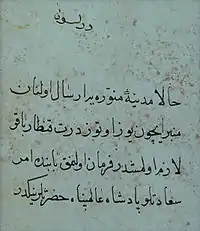 حالا مدينهٔ منوّره يه ارسال اولنان
منبر ايچون يوز اوتوز درت قنطار ياقو
لازم اولمشدر فرمان اولنمق بابنده امر
سعادتلو پادشاه عالمپناه حضرتلرينكدر